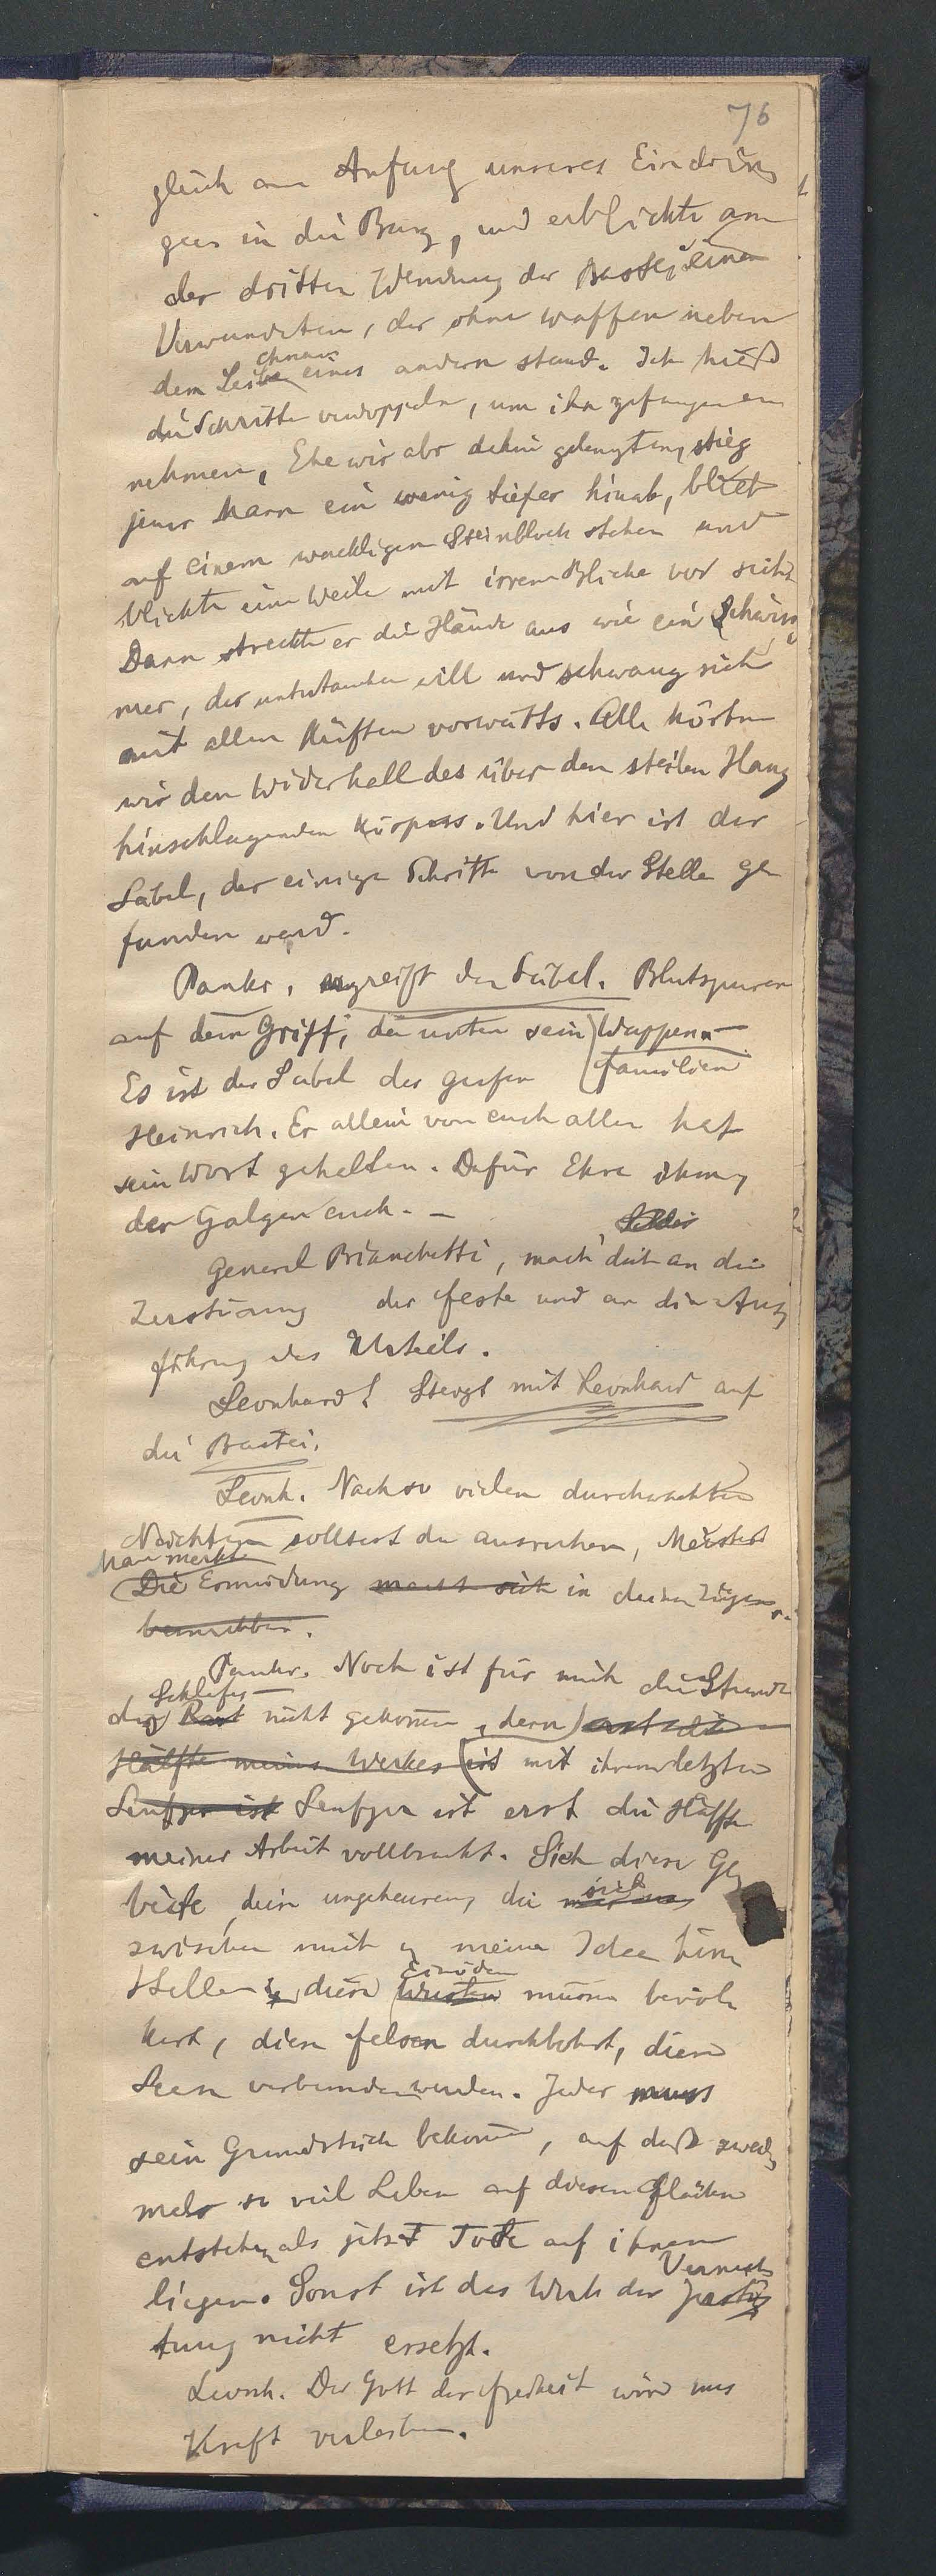 76
gleich am Anfang unseres Eindrin
gens in die Burg, und erblickte an
der dritten Wendung der Bastei einen
Verwundeten, der ohne Waffen neben
chnam
dem Leibe eines andern stand. Ich hieß
die Schritte verdoppeln, um ihn gefangen zu
nehmen, Ehe wir aber dahin gelangten, stieg
jener Mann ein wenig tiefer hinab, blieb
auf einem wackligen Steinblock stehen und
blickte eine Weile mit irrem Blicke vor sich
Dann streckte er die Hände aus wie ein Schwim
mer, der untertauchen will und schwang sich
mit allen Kräften vorwärts. Alle hörten
wir den Widerhall des über den steilen Hang
hinschlagenden Körpers. Und hier ist der
Säbel, der einige Schritte von der Stelle ge
funden ward.
Pankr. ergreift den Säbel. Blutspuren
auf dem Griff, unten sein Wappen
Es ist der Säbel des Grafen Familien
Heinrich. Er allein von euch allen hat
sein Wort gehalten. Dafür Ehre ihm,
der Galgen euch. –
General Bianchetti, mach dich an die
Zerstörung der Feste und an die Aus
führung des Urteils.
Leonhard! Steigt mit Leonhard auf
die Bastei.
Leonh. Nach so vielen durchwachten
Nächten solltest du ausruhen, Meister
Man merkt
Die Ermüdung macht sich in deinen Zügen
bemerkbar.
Pankr. Noch ist für mich die Stunde
Schlafes
des Rast nicht gekommen, denn erst die
Hälfte meines Werkes ist mit ihrem letzten
Seufzer ist Seufzer ist erst die Hälfte
meiner Arbeit vollbracht. Sieh diese Ge
sich
biete, diese ungeheuren, die
zwischen mich u meine Idee hin
Einöden
stellen diese Wüsten müssen bevöl
kert, diese Felsen durchbohrt, diese
Seen verbunden werden. Jeder muss
sein Grundstück bekommen, auf daß zwei
mal so viel Leben auf diesen Flächen
entstehen als jetzt Tote auf ihnen
Vernich
liegen. Sonst ist das Werk der
tung nicht ersetzt.
Leonh. Der Gott der Freiheit wird uns
Kraft verleihen.